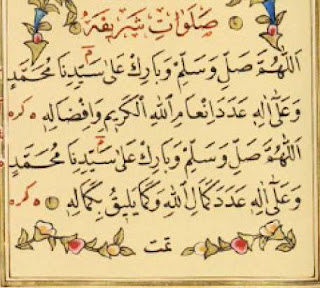 صَلَوَاتِ شَرِيفَه
اَللّٰهُمَّ صَلِّ وَسَلِّمْ وَبَارِكْ عَلٰى سَيِّدِنَا مُحَمَّدٍ
وَعَلٰى اٰلِهِ عَدَدَ اِنْعَامِ اللّٰهِ الْكَرِيمِ وَاِفْضَالِهِ
اَللّٰهُمَّ صَلِّ وَسَلِّمْ وَبَارِكْ عَلٰى سَيِّدِنَا مُحَمَّدٍ
وَعَلٰى اٰلِهِ عَدَدَ كَمَالِ اللّٰهِ وَكَمَا يَلِيقُ بِكَمَالِهِ
تمت